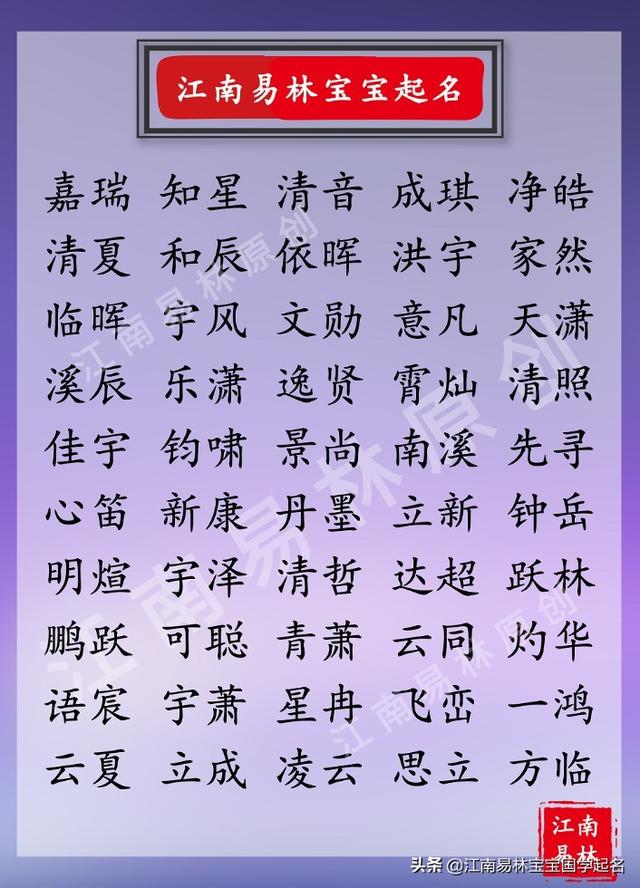 江南易林宝宝起名
嘉瑞 知星 清音 成琪 净皓
清夏 和辰 依晖 洪宇 家然
临晖 宇风 文勋 意凡 天潇
溪辰 乐潇 逸贤 霄灿 清照
佳宇 钧啸 景尚 南溪 先寻
心笛 新康 丹墨 立新 钟岳
明煊 宇泽 清哲 达超 跃林
鹏跃 可聪 青萧 云同 灼华
语宸 宇萧 星冉 飞峦 一鸿
云夏 立成 凌云 思立 方临
江南易林原创
江南易林原创
江南易林原创
江南
易林
头条 @江南易林宝宝国学起名